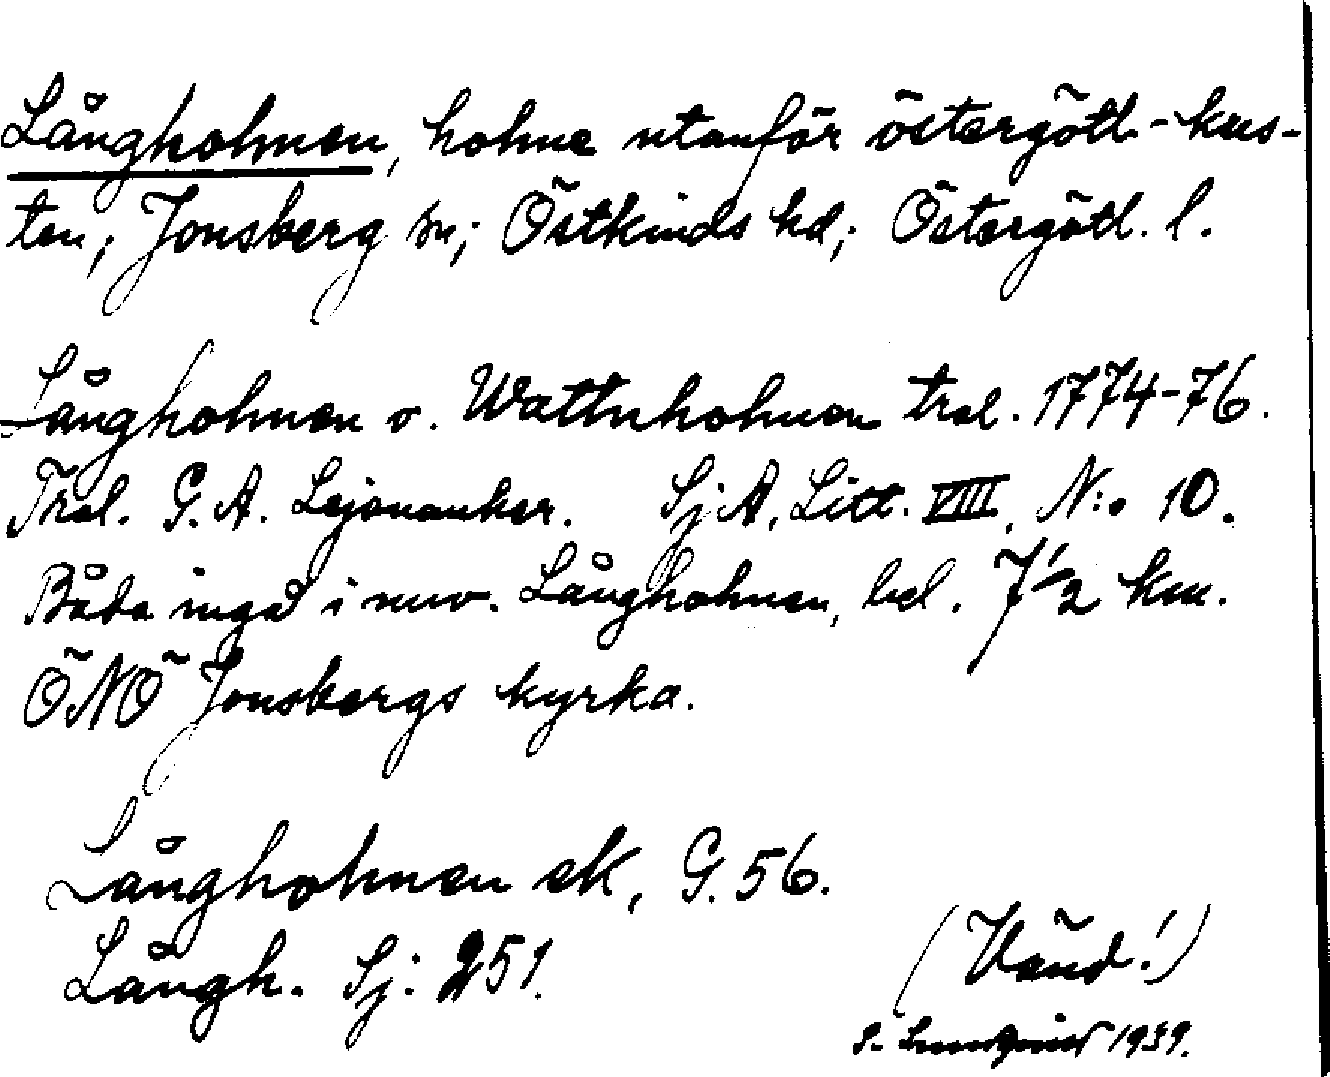 Långholmen, holme utanför östergötl-kus-
ten; Jonsberg sn; Östkinds hd; Östergötl. l.
Långholmen o. Wattnholmen tral. 1774-76.
Tral. G. A. Lejonanker. SjA, Litt. VIII, N:o 10.
Båda ingå i nuv. Långholmen, bel. 7 1/2 km.
ÖNÖ Jonsbergs kyrka.
Långholmen ek, G. 56.
Långh. Sj: 251.
(Vänd!)
S. 1939.